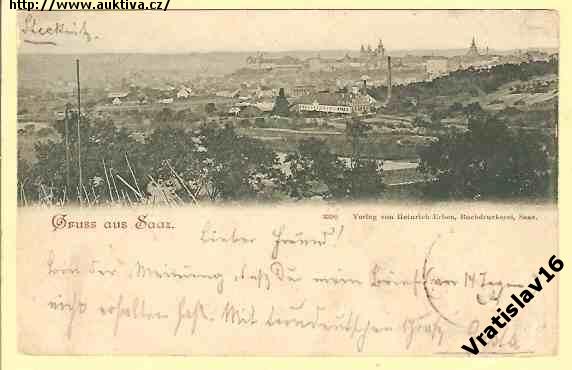 http://www.auktiva.cz/
Stecknitz.
Gruss aus Saaz.
Verlag von Heinrich Erben, Buchdruckerei, Saaz.
Lieber Freund!
der Meinung, daß Du mein Brief vor 14 Tagen
nicht erhalten hast. Mit treudeutschem Gruß
Vratislav16